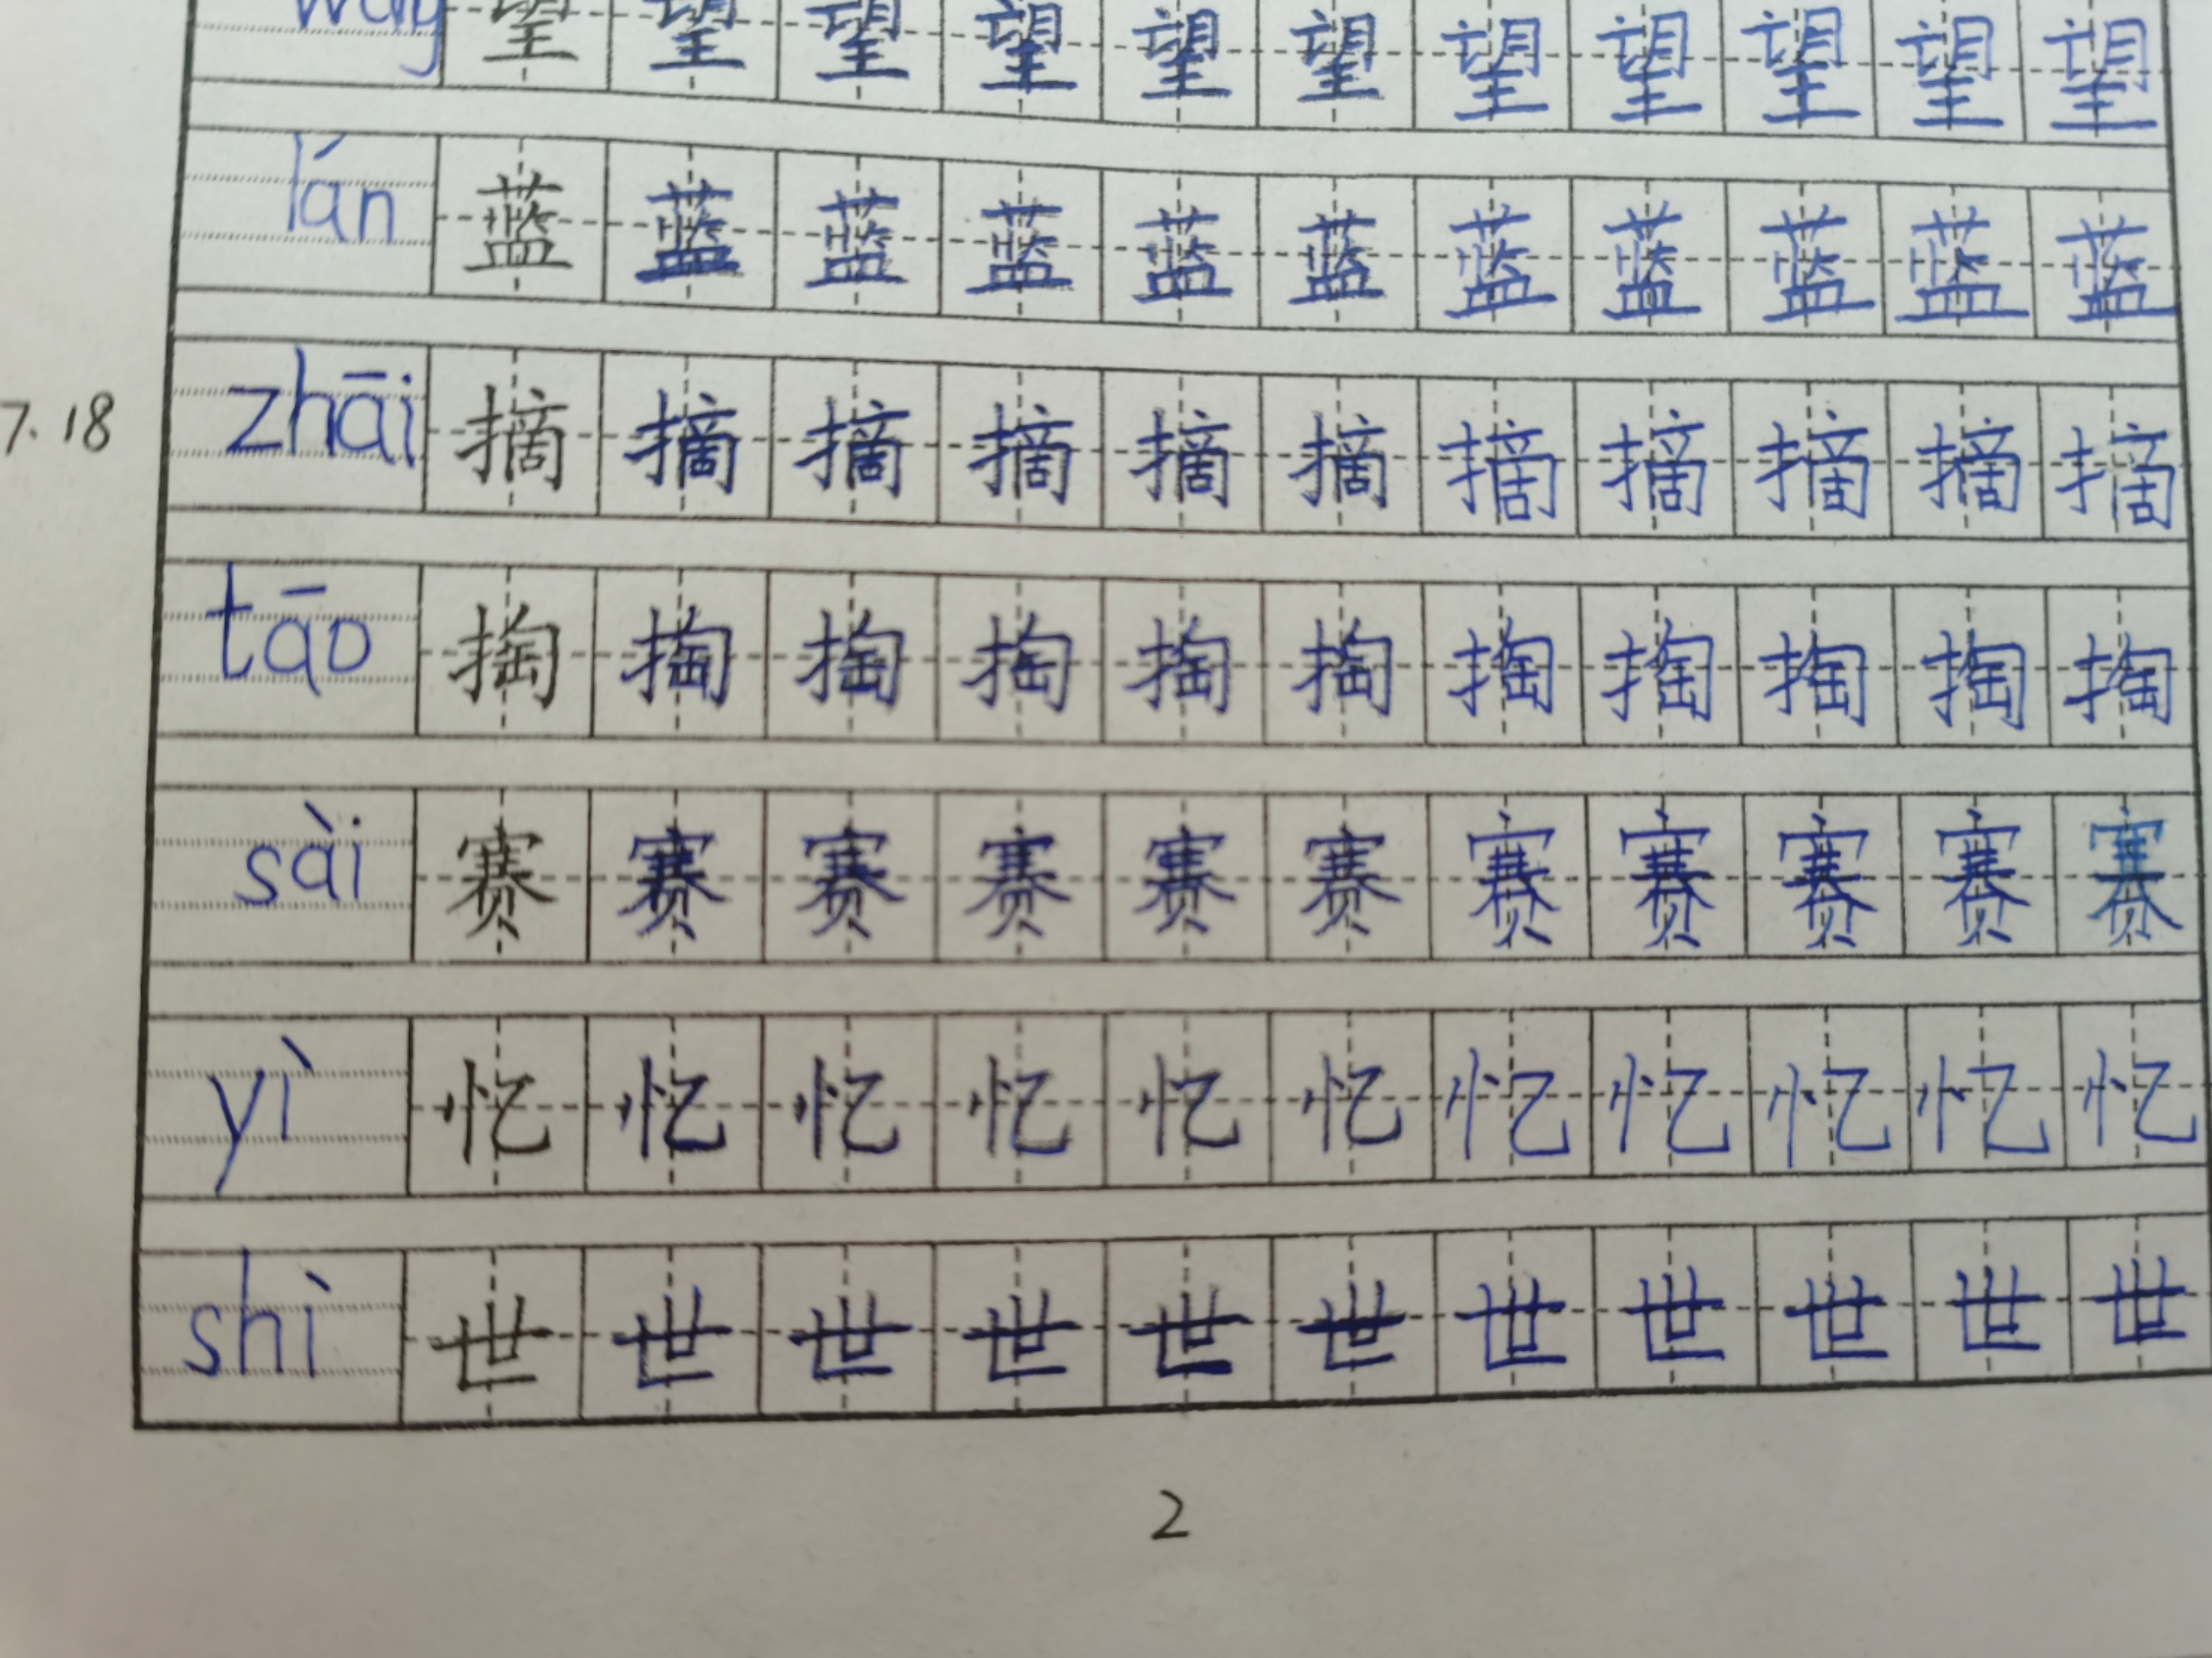 wàng 望 望 望 望 望 望 望 望 望 望 望
lán 蓝 蓝 蓝 蓝 蓝 蓝 蓝 蓝 蓝 蓝 蓝
7.18 zhāi 摘 摘 摘 摘 摘 摘 摘 摘 摘 摘 摘
tāo 掏 掏 掏 掏 掏 掏 掏 掏 掏 掏 掏
sài 赛 赛 赛 赛 赛 赛 赛 赛 赛 赛 赛
yì 忆 忆 忆 忆 忆 忆 忆 忆 忆 忆 忆
shì 世 世 世 世 世 世 世 世 世 世 世
2